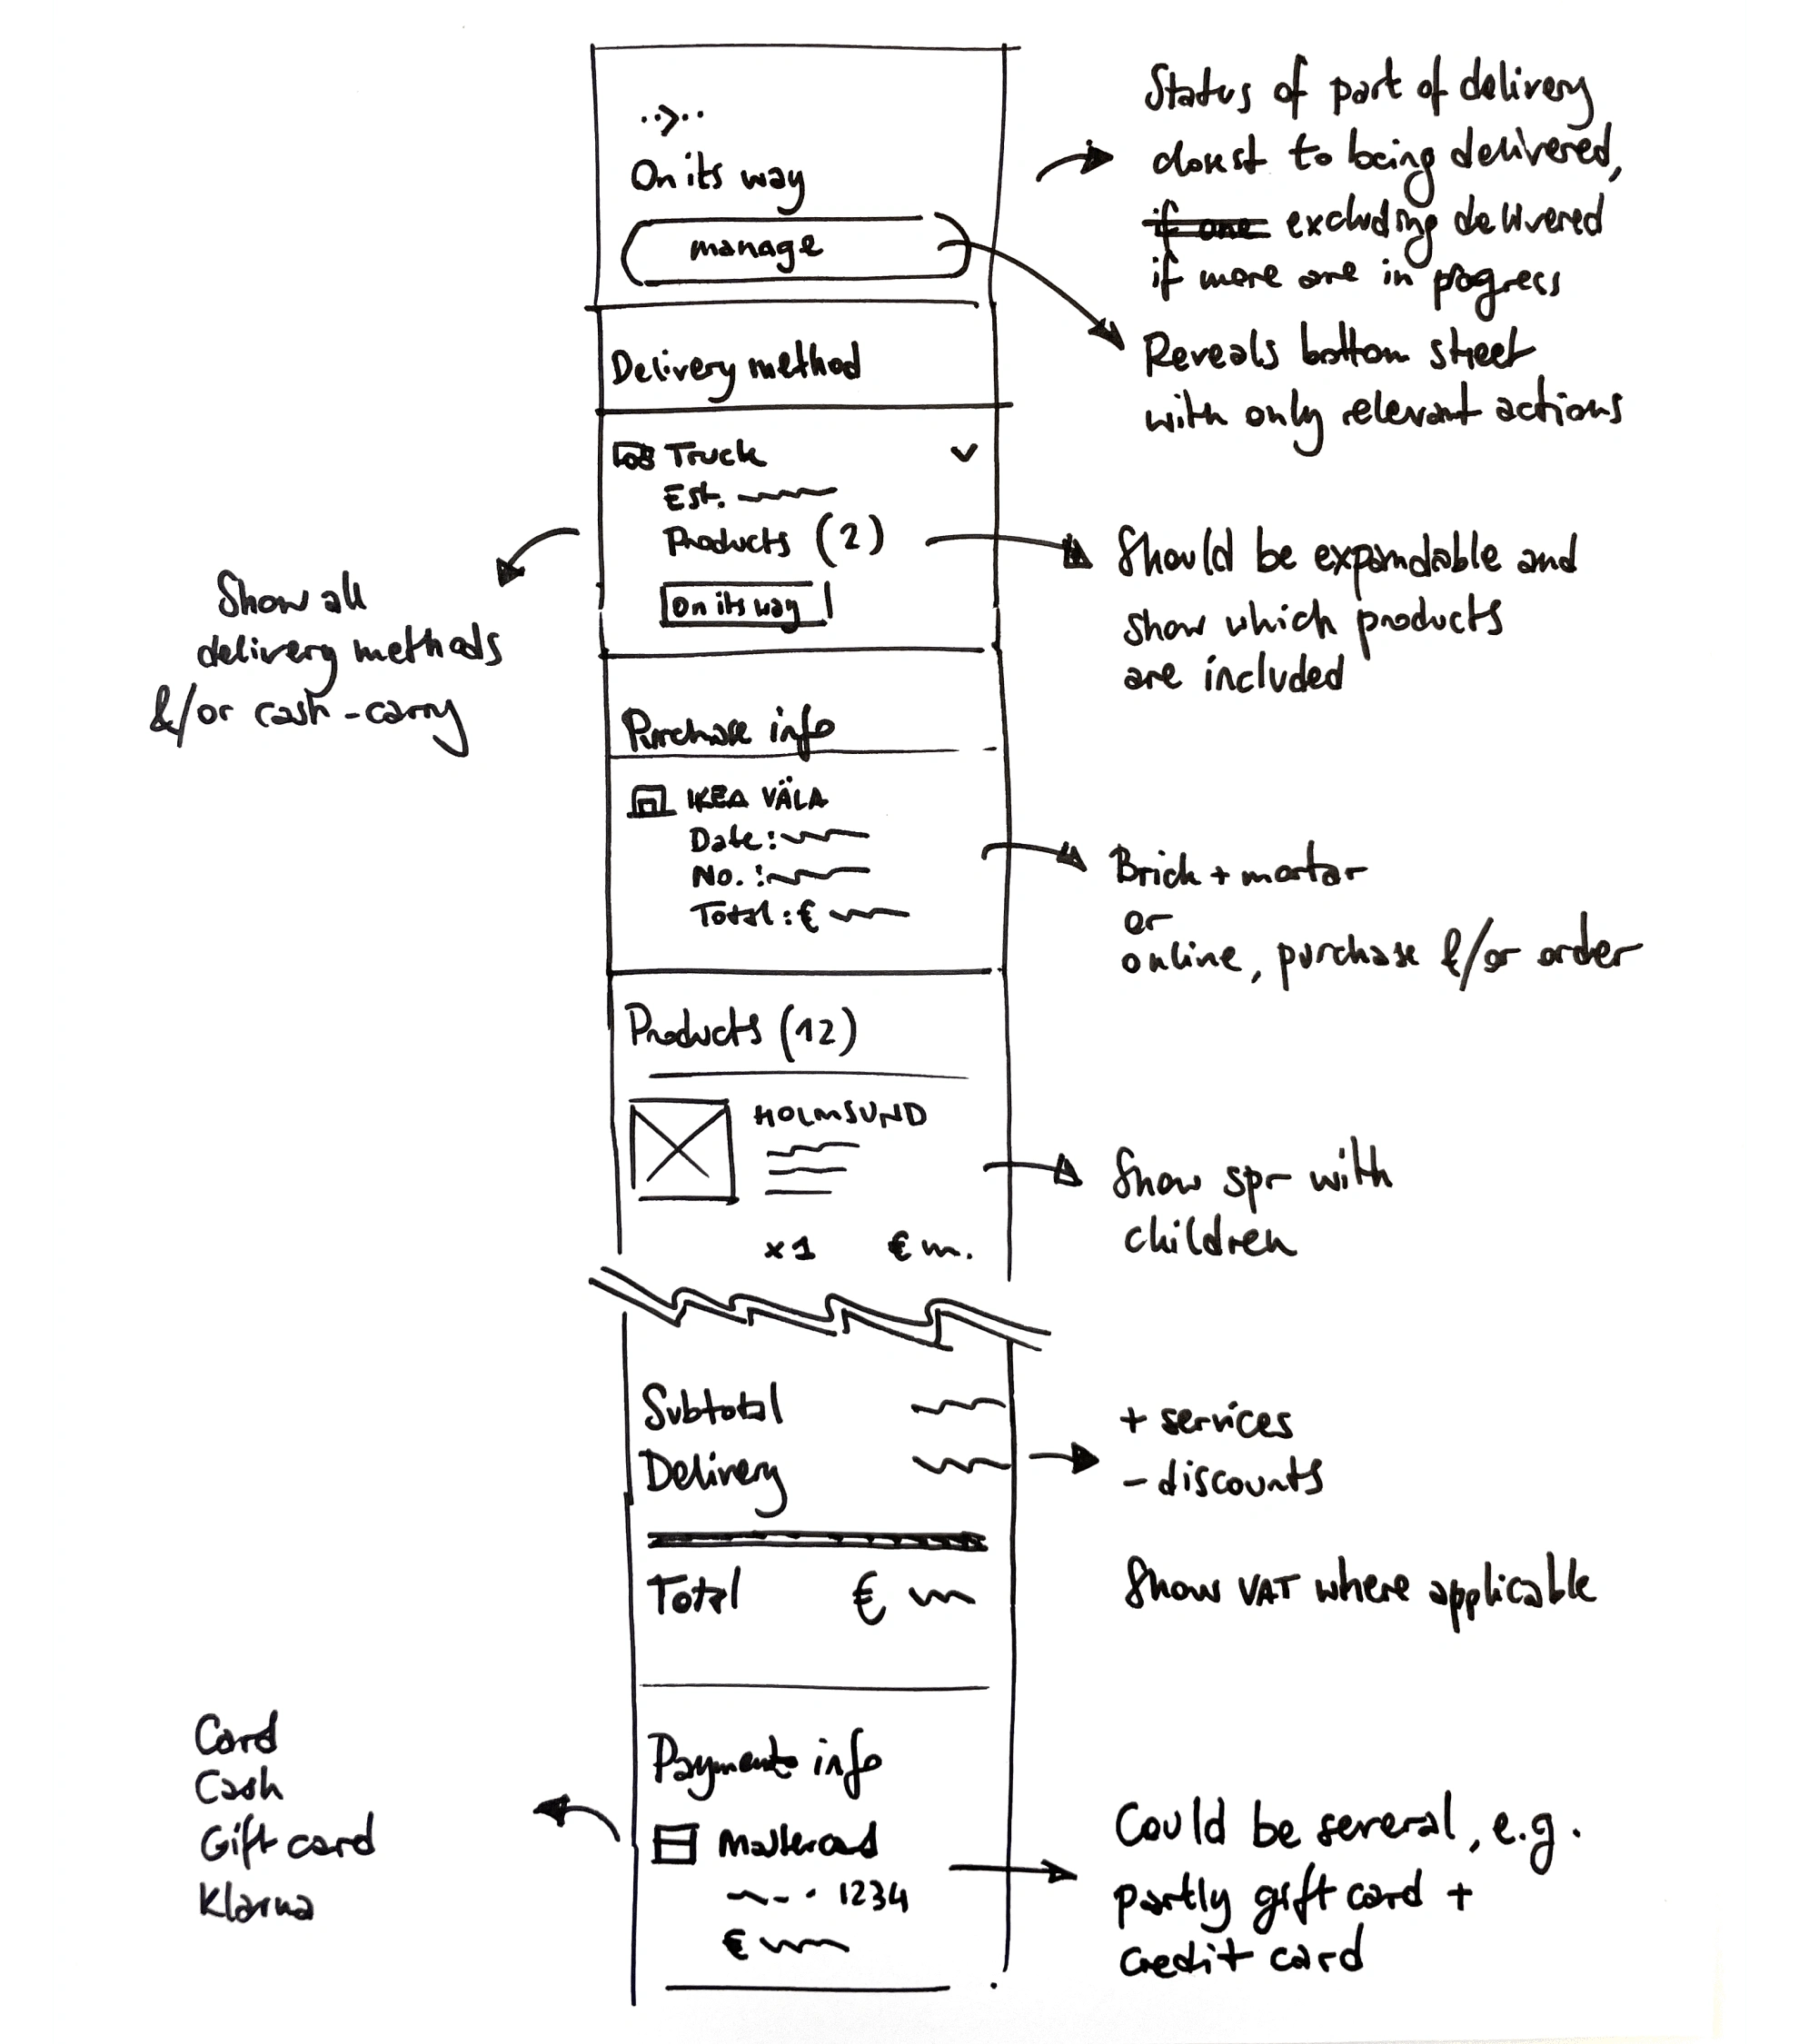 On its way
manage
Status of part of delivery
closest to being delivered,
if one excluding delivered
if more are in progress
Reveals bottom sheet
with only relevant actions
Delivery method
Truck
Est.
Products (2)
On its way
Should be expandable and
show which products
are included
Show all
delivery methods
&/or cash-carry
Purchase info
IKEA VÄLA
Date:
No.:
Total: €
Brick + mortar
or
online, purchase &/or order
Products (12)
HOLMSUND
x1 €
Show spr with
children
Subtotal
Delivery
+ services
- discounts
Total €
Show VAT where applicable
Payment info
Mastercard
1234
€
Card
Cash
Gift card
Klarna
Could be several, e.g.
partly gift card +
credit card